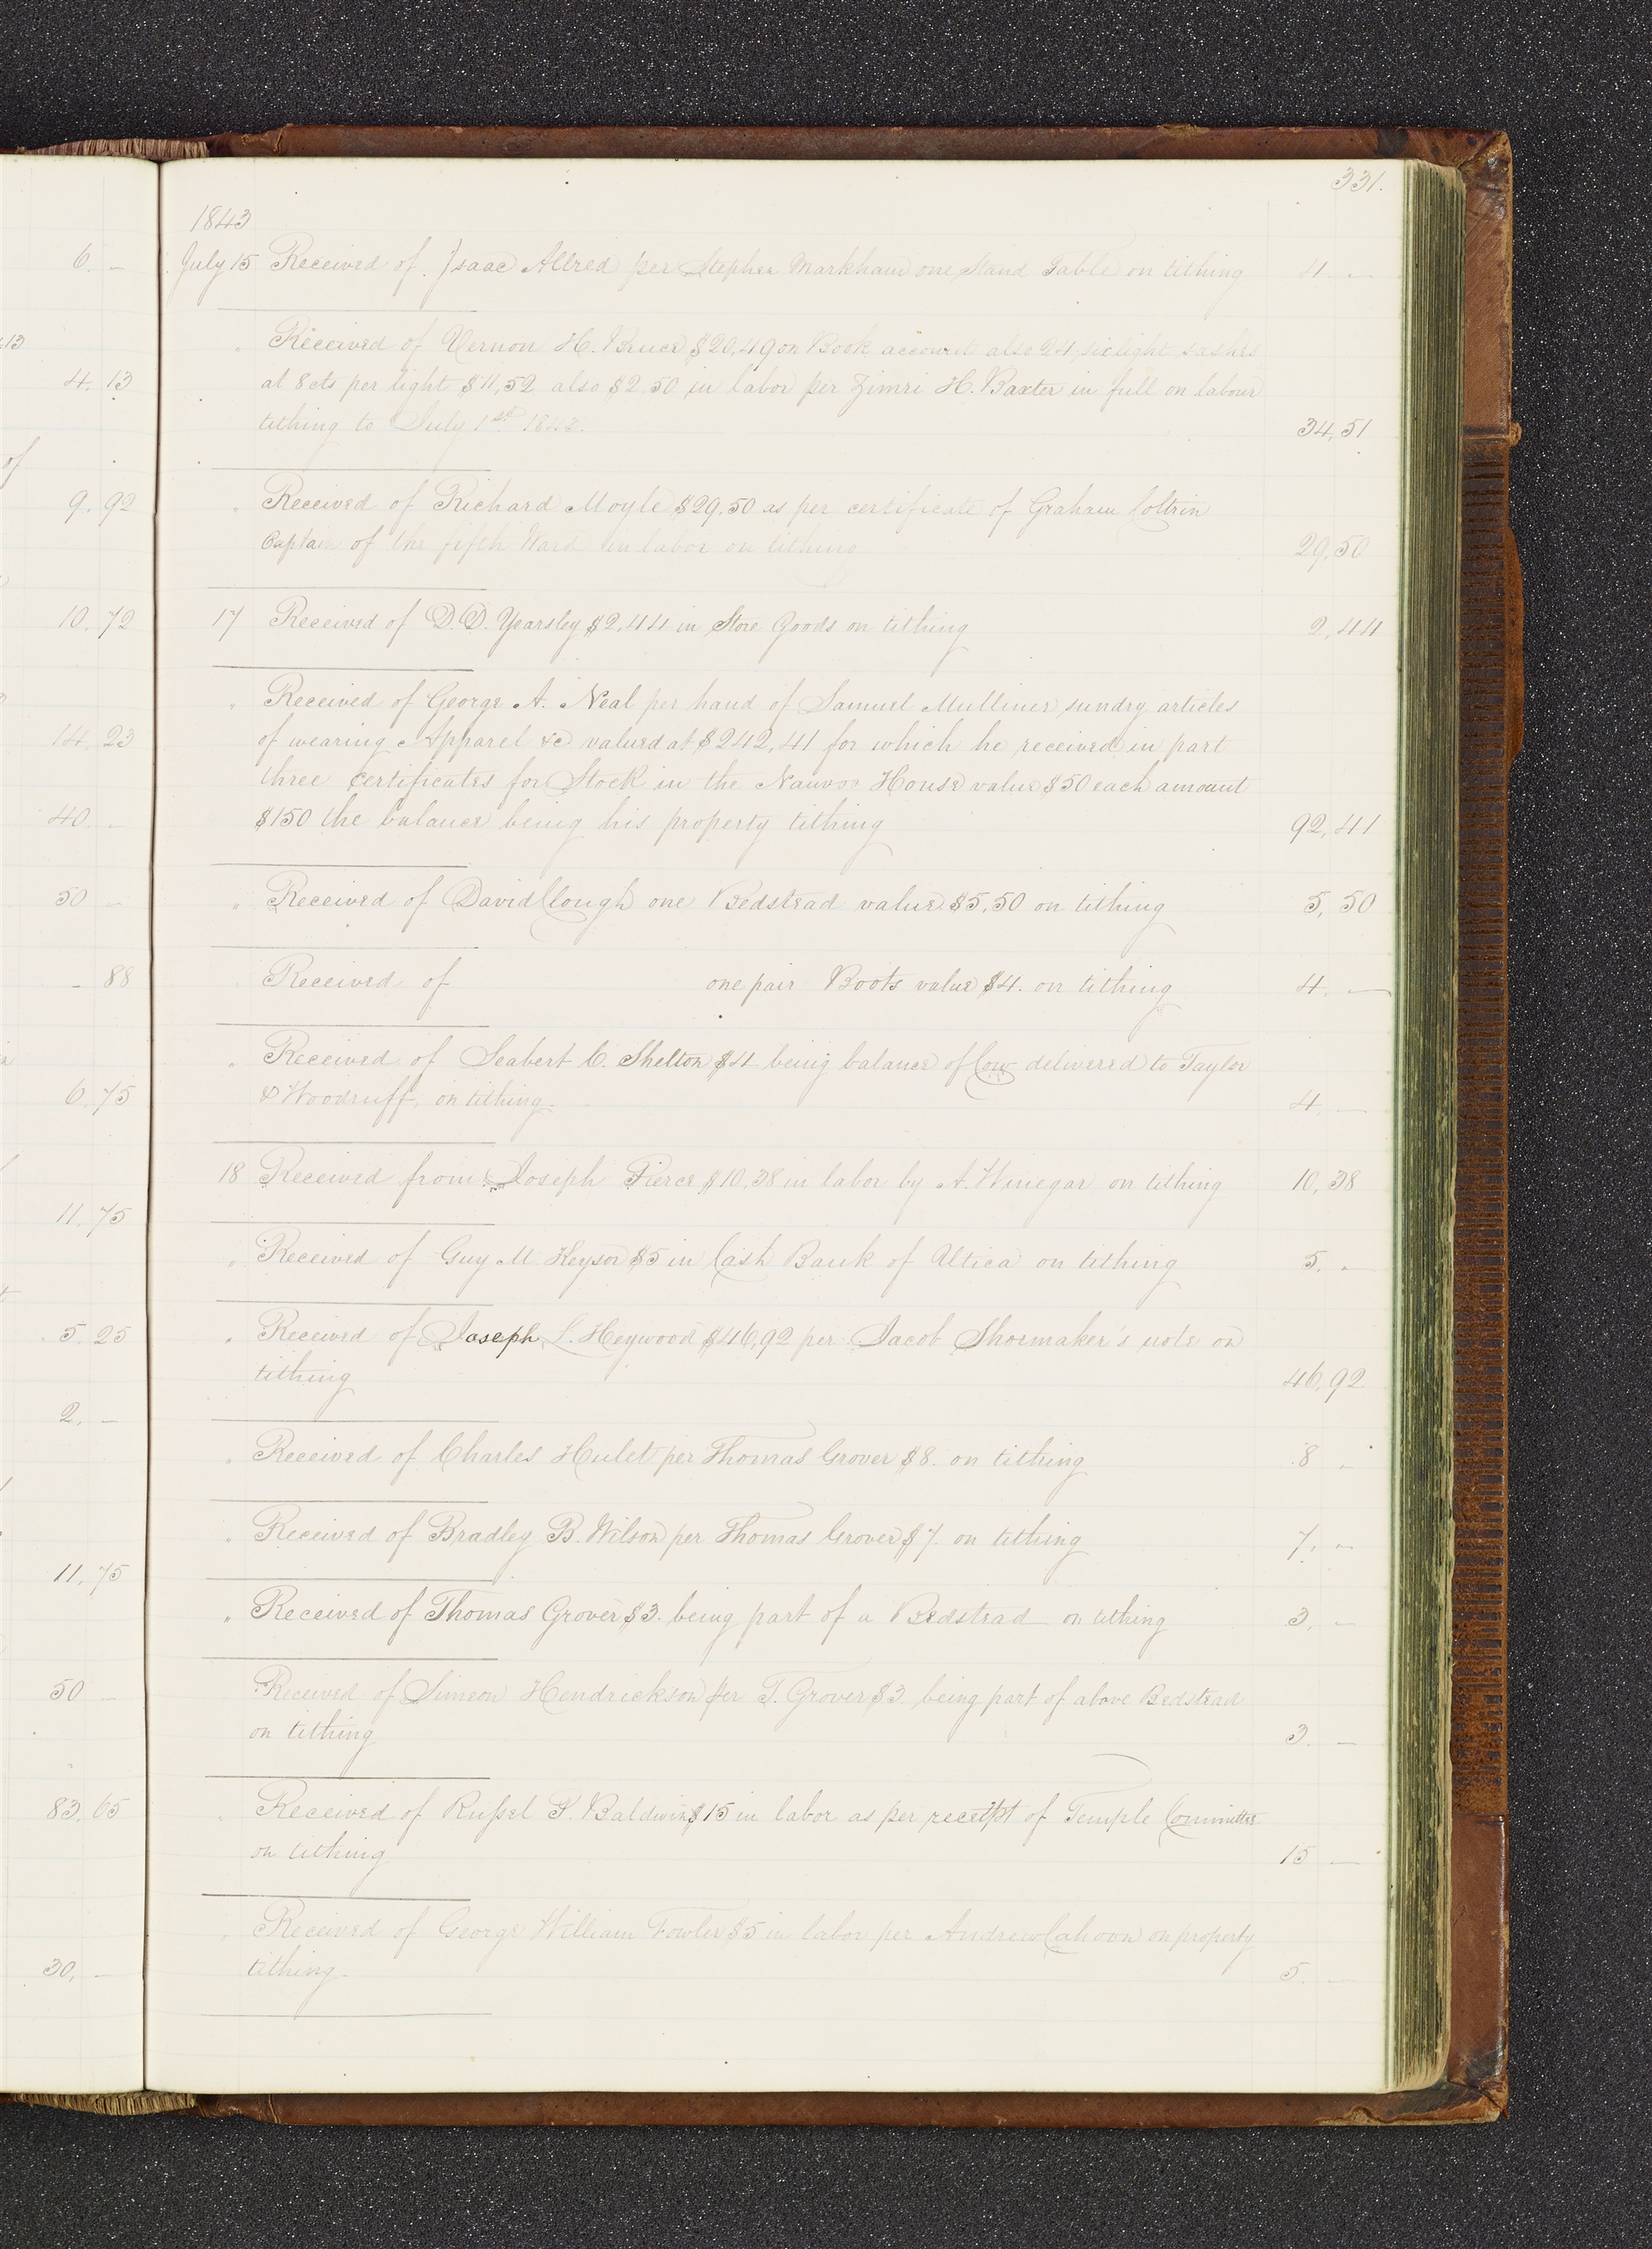 331.
1843
July 15 Received of Isaac Allred per Stephen Markham one Stand Table on tithing 4. —
" Received of Vernon H. Bruce $20,49 on Book account also 24 six light sashes
at 8 cts per light $11,52 also $2.50 in labor per Zimri H. Baxter in full on labour
tithing to July 1st 1843. 34,51
" Received of Richard Moyle $29.50 as per certificate of Graham Coltrin
Captain of the fifth Ward in labor on tithing 29,50
17 Received of D. D. Yearsley $2,44 in Store Goods on tithing 2,44
" Received of George A. Neal per hand of Samuel Mulliner sundry articles
of wearing Apparel &c valued at $242,41 for which he received in part
three certificates for Stock in the Nauvoo House value $50 each amount
$150 the balance being his property tithing 92,41
" Received of David Clough one Bedstead value $5,50 on tithing 5,50
" Received of one pair Boots value $4. on tithing 4. —
" Received of Seabert C. Shelton $4 being balance of Cow delivered to Taylor
& Woodruff, on tithing. 4. —
18 Received from Joseph Pierce $10,38 in labor by A. Winegar on tithing 10,38
" Received of Guy M. Keysor $5 in Cash Bank of Altica on tithing 5. —
" Received of Joseph L. Heywood $46,92 per Jacob Shoemaker's note on
tithing 46,92
" Received of Charles Hulet per Thomas Grover $8. on tithing 8 —
" Received of Bradley B. Wilson per Thomas Grover $7. on tithing 7. —
" Received of Thomas Grover $3. being part of a Bedstead on tithing 3, —
Received of Simeon Hendrickson per T. Grover $3. being part of above Bedstead
on tithing 3. —
" Received of Russel K. Baldwin $15 in labor as per receipt of Temple Committee
on tithing 15 —
" Received of George William Fowler $5 in labor per Andrew Cahoon on property
tithing. 5. —
6. —
13
4, 13
of
9. 92
10. 72
14, 23
40. —
50 —
— 88
6. 75
11. 75
5. 25
2. —
11, 75
50 —
83, 65
30, —